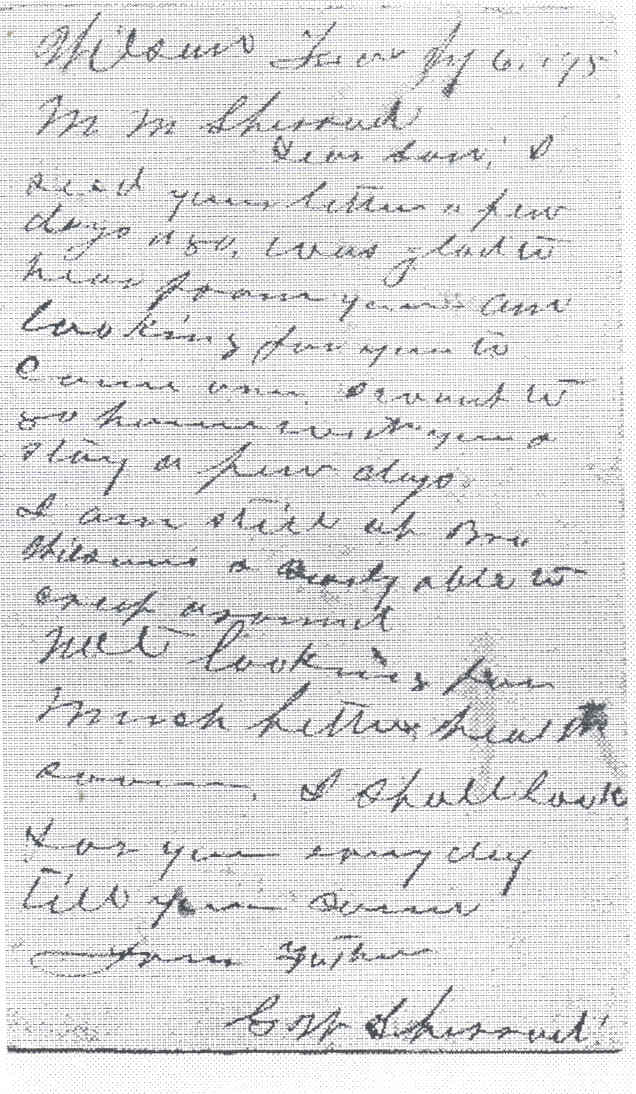 Wilson Tenn July 6, 195
M M Sherrod
Dear Son, I
recd your letter a few
days ago, was glad to
hear from you am
looking for you to
come on. I want to
go home with you a
stay a few days.
I am still at Bro
Wilsons & barely able to
creep around
not looking for
much better health
soon. I shall look
for you every day
till you come
from Father
G W Sherrod